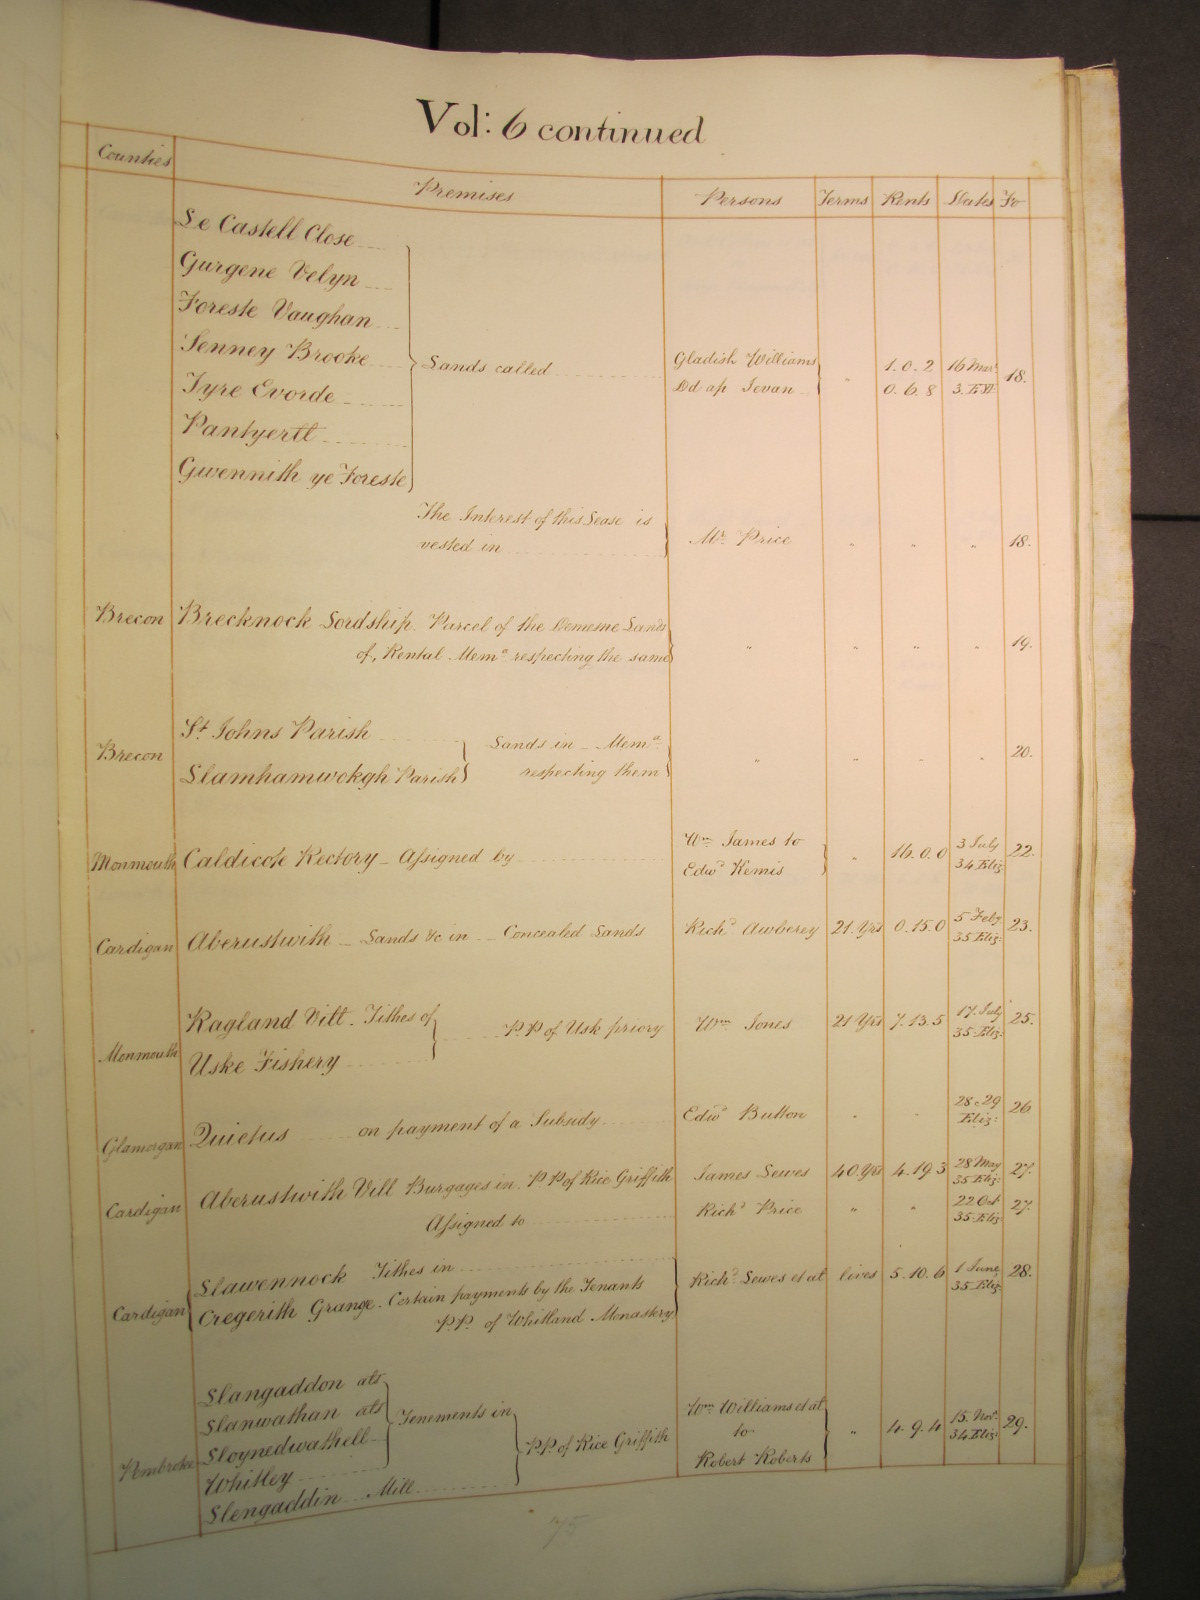 Vol: 6 continued
Counties Premises Persons Terms Rents Dates Fo
Le Castell Close
Gurgene Velyn
Foreste Vaughan
Senney Brooke
Tyre Evorde
Pantyertt
Gwennith ye Foreste
Lands called
Gladish Williams 1. 0. 2 16 Mar:
Dd ap Jevan " 0. 6. 8 3. E. VI: 18.
The Interest of this Lease is
vested in Mr. Price " " " 18.
Brecon Brecknock Lordship. Parcel of the Demesne Lands
of, Rental. Mema. respecting the same " " " " 19.
Brecon St. Johns Parish
Llamhamwokgh Parish
Lands in _ Mema.
respecting them " " " " 20.
Monmouth Caldicote Rectory _ Assigned by Wm. James to
Edwd. Kemis " 16. 0. 0 3 July
34. Eliz: 22.
Cardigan Aberustwith _ Lands &c in _ Concealed Lands Richd. Awberey 21 Yrs 0. 15. 0 5 Feby
35 Eliz: 23.
Monmouth Ragland Vill. Tithes of
Uske Fishery
P.P. of Usk priory Wm. Jones 21 Yrs 7. 13. 5 17. July
35. Eliz: 25.
Glamorgan Quietus on payment of a Subsidy Edwd. Button " " 28 & 29
Eliz: 26
Cardigan Aberustwith Vill Burgages in. P.P. of Rice Griffith James Lewes 40 Yrs 4. 19. 3 28 May
35. Eliz: 27.
Assigned to Richd. Price " " 22 Oct
35. Eliz: 27.
Cardigan Llawennock Tithes in
Cregerith Grange. Certain payments by the Tenants
P.P. of Whitland Monastery
Richd. Lewes et al lives 5. 10. 6 1 June
35. Eliz: 28.
Pembroke Llangaddon als
Llanwathan als
Lloynedwathell
Whitley
Llengaddin Mill
Tenements in
P.P. of Rice Griffith
Wm. Williams et al
to
Robert Roberts
" 4. 9. 4 15. Nov:
34 Eliz: 29.
75